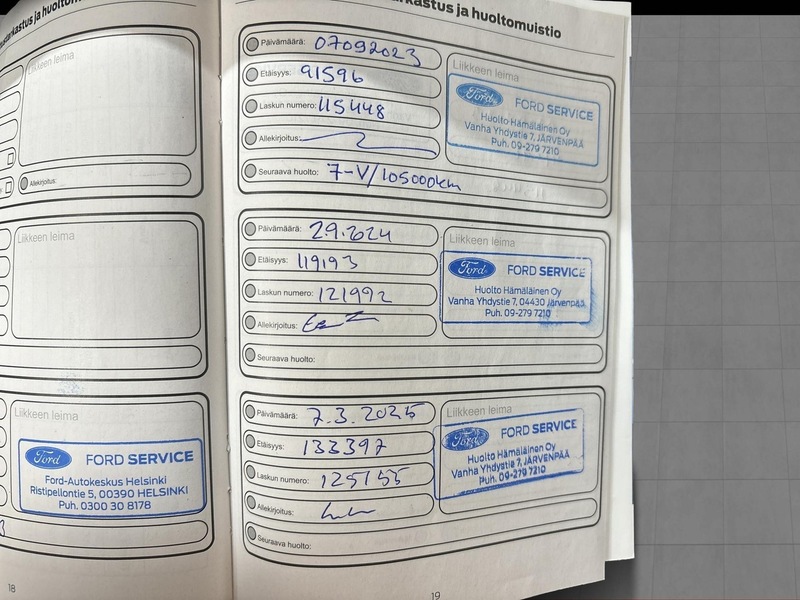 tarkastus ja huoltomuistio
Liikkeen leima
Allekirjoitus:
Liikkeen leima
Liikkeen leima
Ford
FORD SERVICE
Ford-Autokeskus Helsinki
Ristipellontie 5, 00390 HELSINKI
Puh. 0300 30 8178
18
arkastus ja huoltomuistio
Päivämäärä: 07092023
Etäisyys: 91596
Laskun numero: 115448
Allekirjoitus:
Seuraava huolto: 7-V/105000km
Liikkeen leima
Ford
FORD SERVICE
Huolto Hämäläinen Oy
Vanha Yhdystie 7, JÄRVENPÄÄ
Puh. 09-279 7210
Päivämäärä: 2.9.2024
Etäisyys: 119193
Laskun numero: 121992
Allekirjoitus:
Seuraava huolto:
Liikkeen leima
Ford
FORD SERVICE
Huolto Hämäläinen Oy
Vanha Yhdystie 7, 04430 Järvenpää
Puh. 09-279 7210
Päivämäärä: 7.3.2025
Etäisyys: 133397
Laskun numero: 125155
Allekirjoitus:
Seuraava huolto:
Liikkeen leima
Ford
FORD SERVICE
Huolto Hämäläinen Oy
Vanha Yhdystie 7, JÄRVENPÄÄ
Puh. 09-279 7210
19